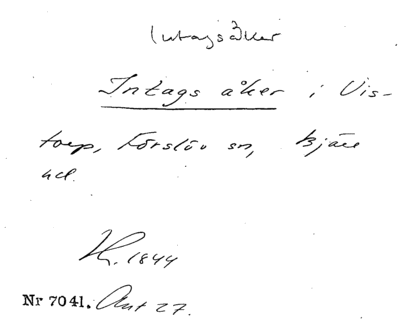 Intagsåker
Intags åker i Vis-
torp, Förslöv sn, Bjäre
hd.
1844
Nr 7041. Ant 27.